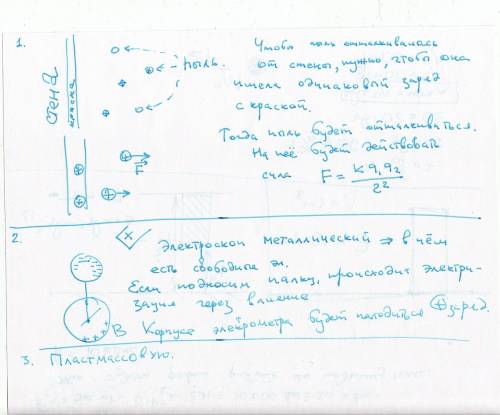 1.
стена
краска
пыль.
Чтобы пыль отталкивалась
от стены, нужно, чтобы она
имела одинаковый заряд
с краской.
Тогда пыль будет отталкиваться.
На неё будет действовать
сила F = K q₁ q₂ / r²
F
2.
Электроскоп металлический ⇒ в нём
есть свободные эл.
Если подносим палку, происходит электри-
зация через влияние
В корпусе электрометра будет находиться ⊕ заряд.
3. Пластмассовую.